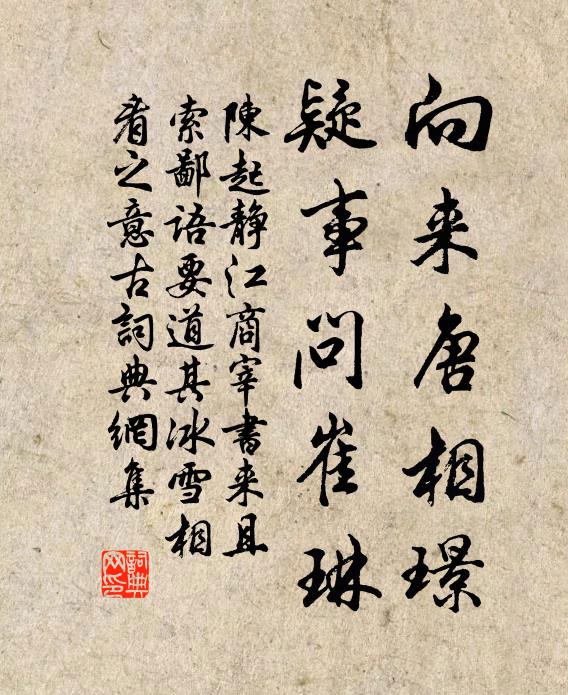 向来唐相璟
疑事问崔琳
陳起静江商宰書来且
索鄙语要道其冰雪相
看之意古詞典網集
詞典網印